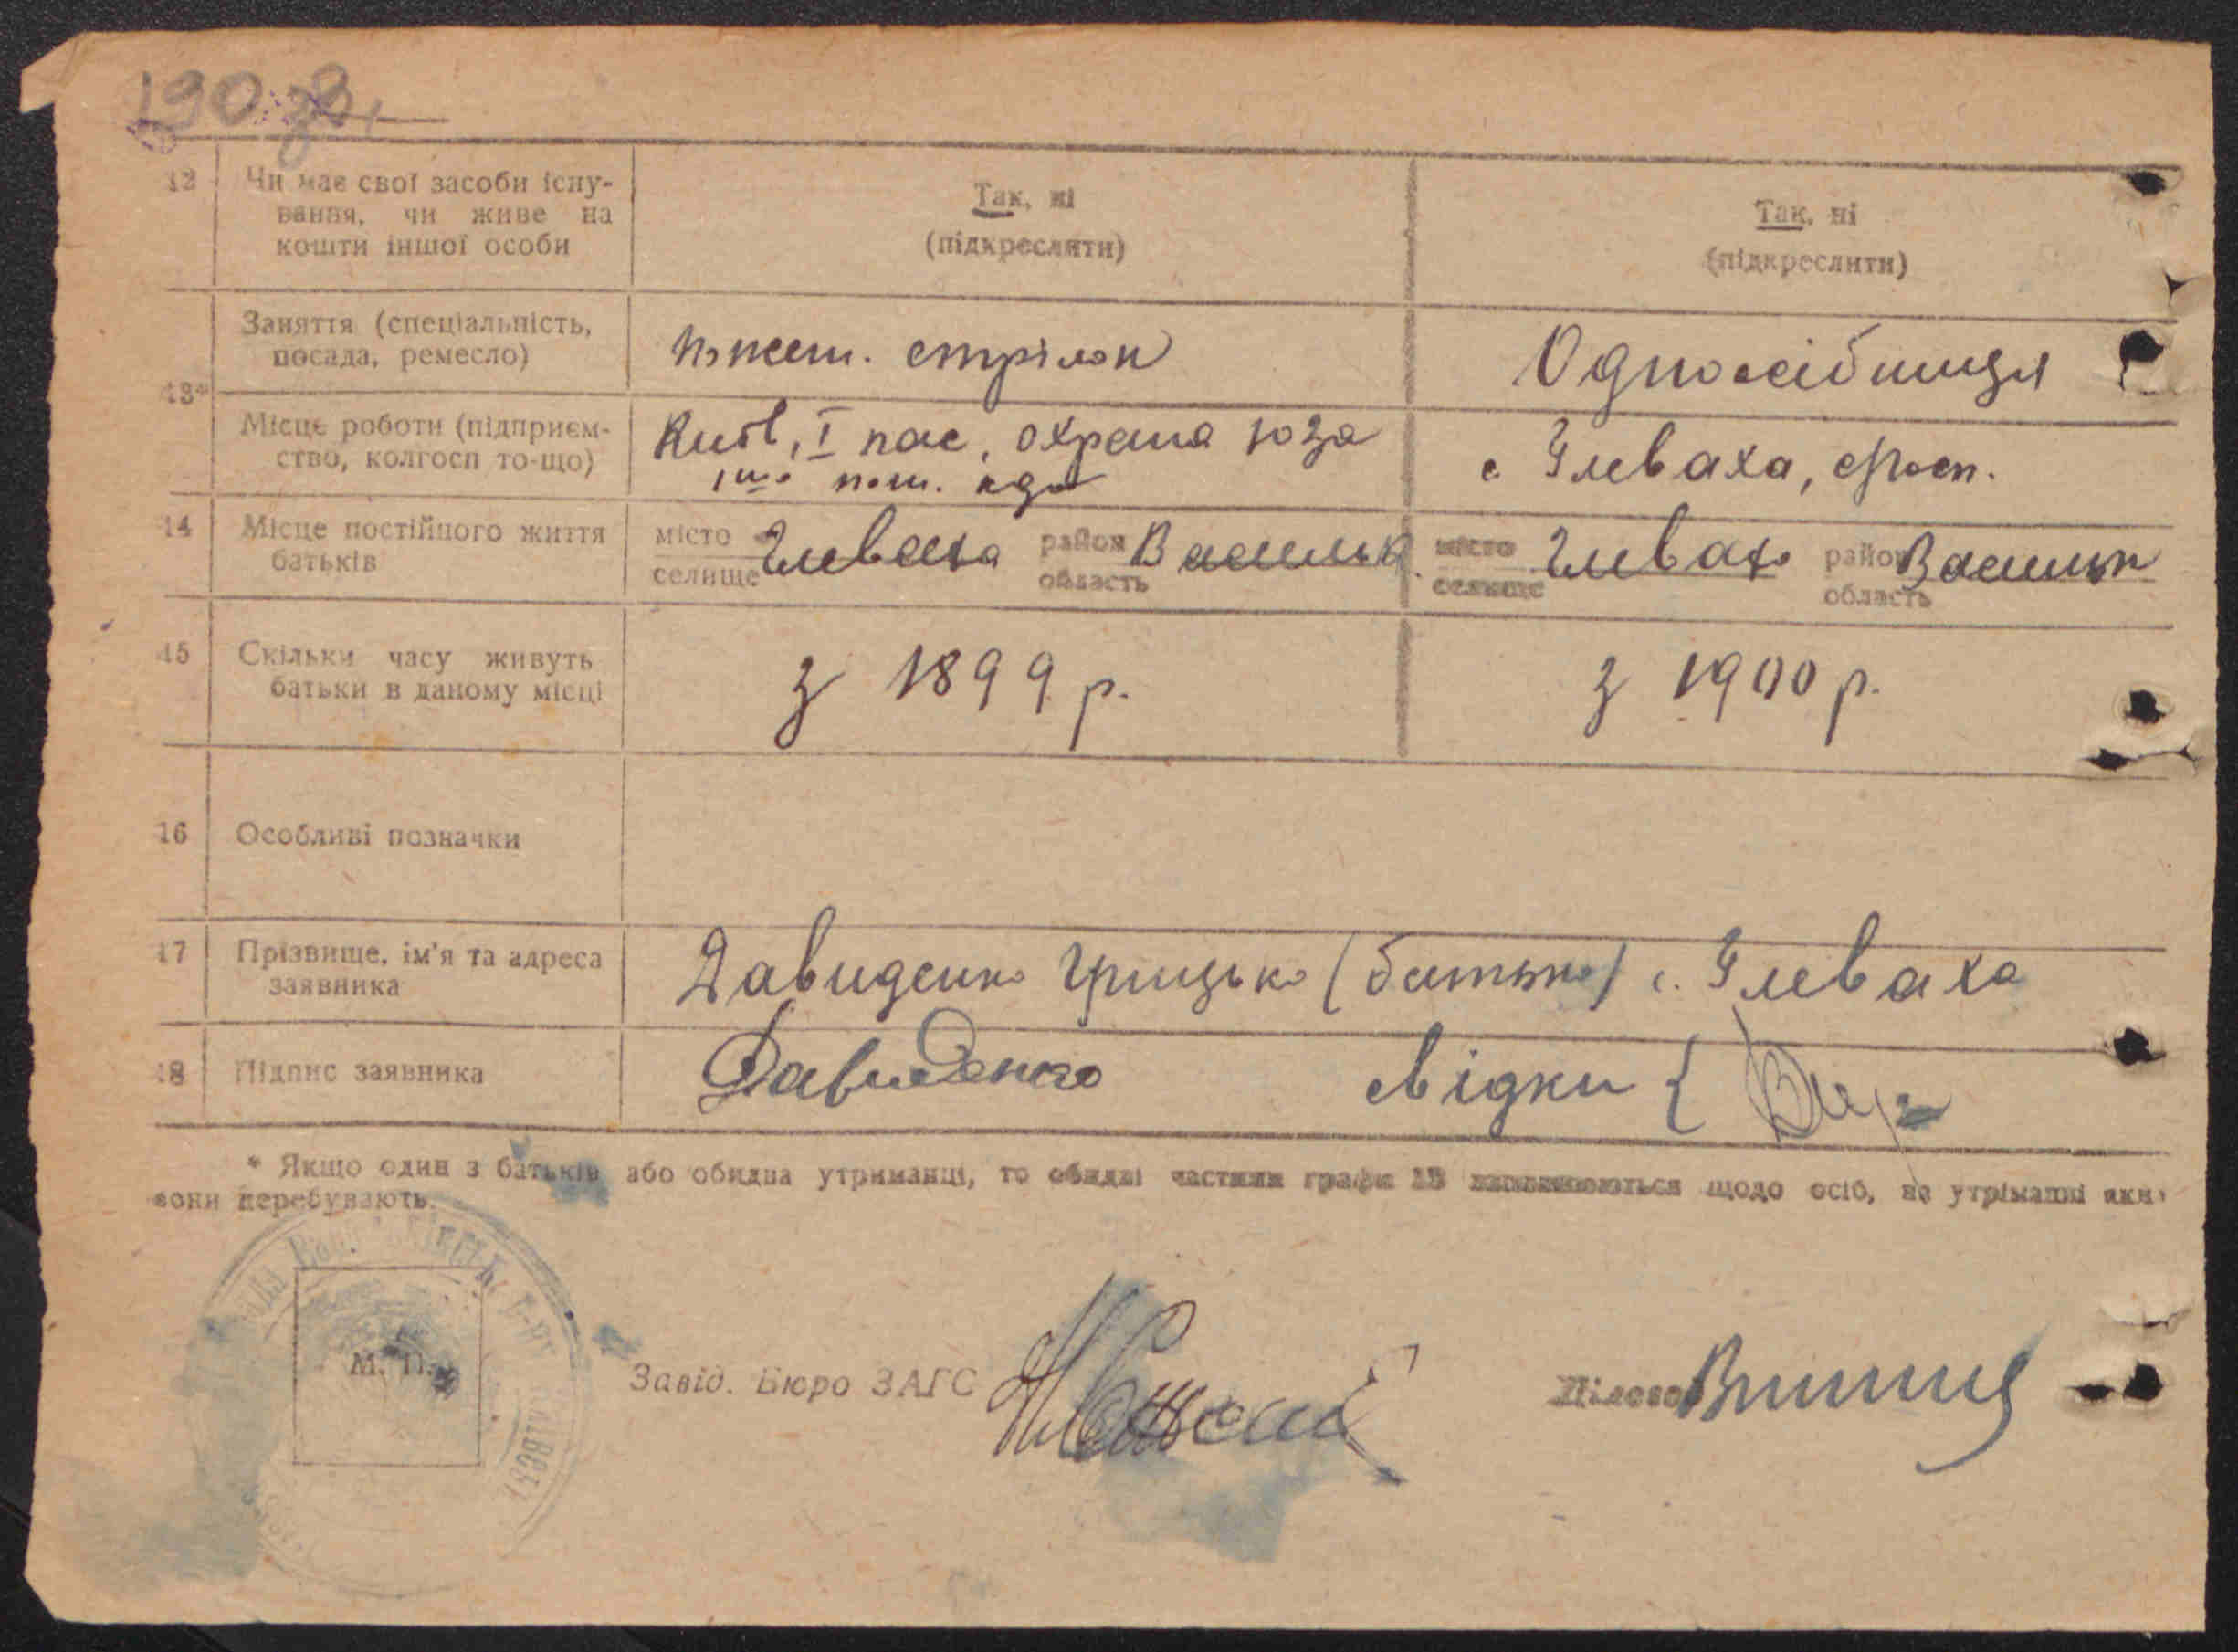 190
12 Чи має свої засоби існу-
вання, чи живе на
кошти іншої особи
Так, ні
(підкреслити)
Так, ні
(підкреслити)
13*
Заняття (спеціальність,
посада, ремесло)
стрілок
Односібниця
Місце роботи (підприєм-
ство, колгосп то-що)
Київ, I пас, охрана
с Глеваха,
14 Місце постійного життя
батьків
місто
селище Глеваха район
область Васильк.
місто
селище Глеваха район
область Васильк
15 Скільки часу живуть
батьки в даному місці
з 1899 р.
з 1900 р.
16 Особливі позначки
17 Прізвище, ім'я та адреса
заявника
Давиденко Грицько (батько) с. Глеваха
18 Підпис заявника
Давиденко свідки {
* Якщо один з батьків або обидва утриманці, то обидві частини графи 13 заповнюються щодо осіб, на утріманні яких
вони перебувають.
М. П.
Завід. Бюро ЗАГС
Діловод